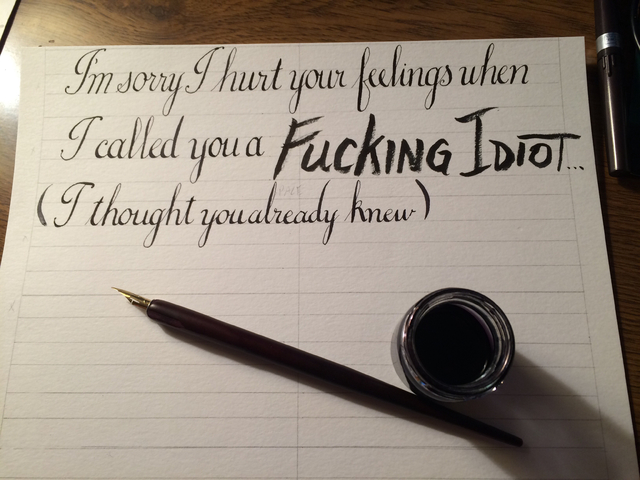 I'm sorry I hurt your feelings when
I called you a FUCKING IDIOT...
(I thought you already knew)